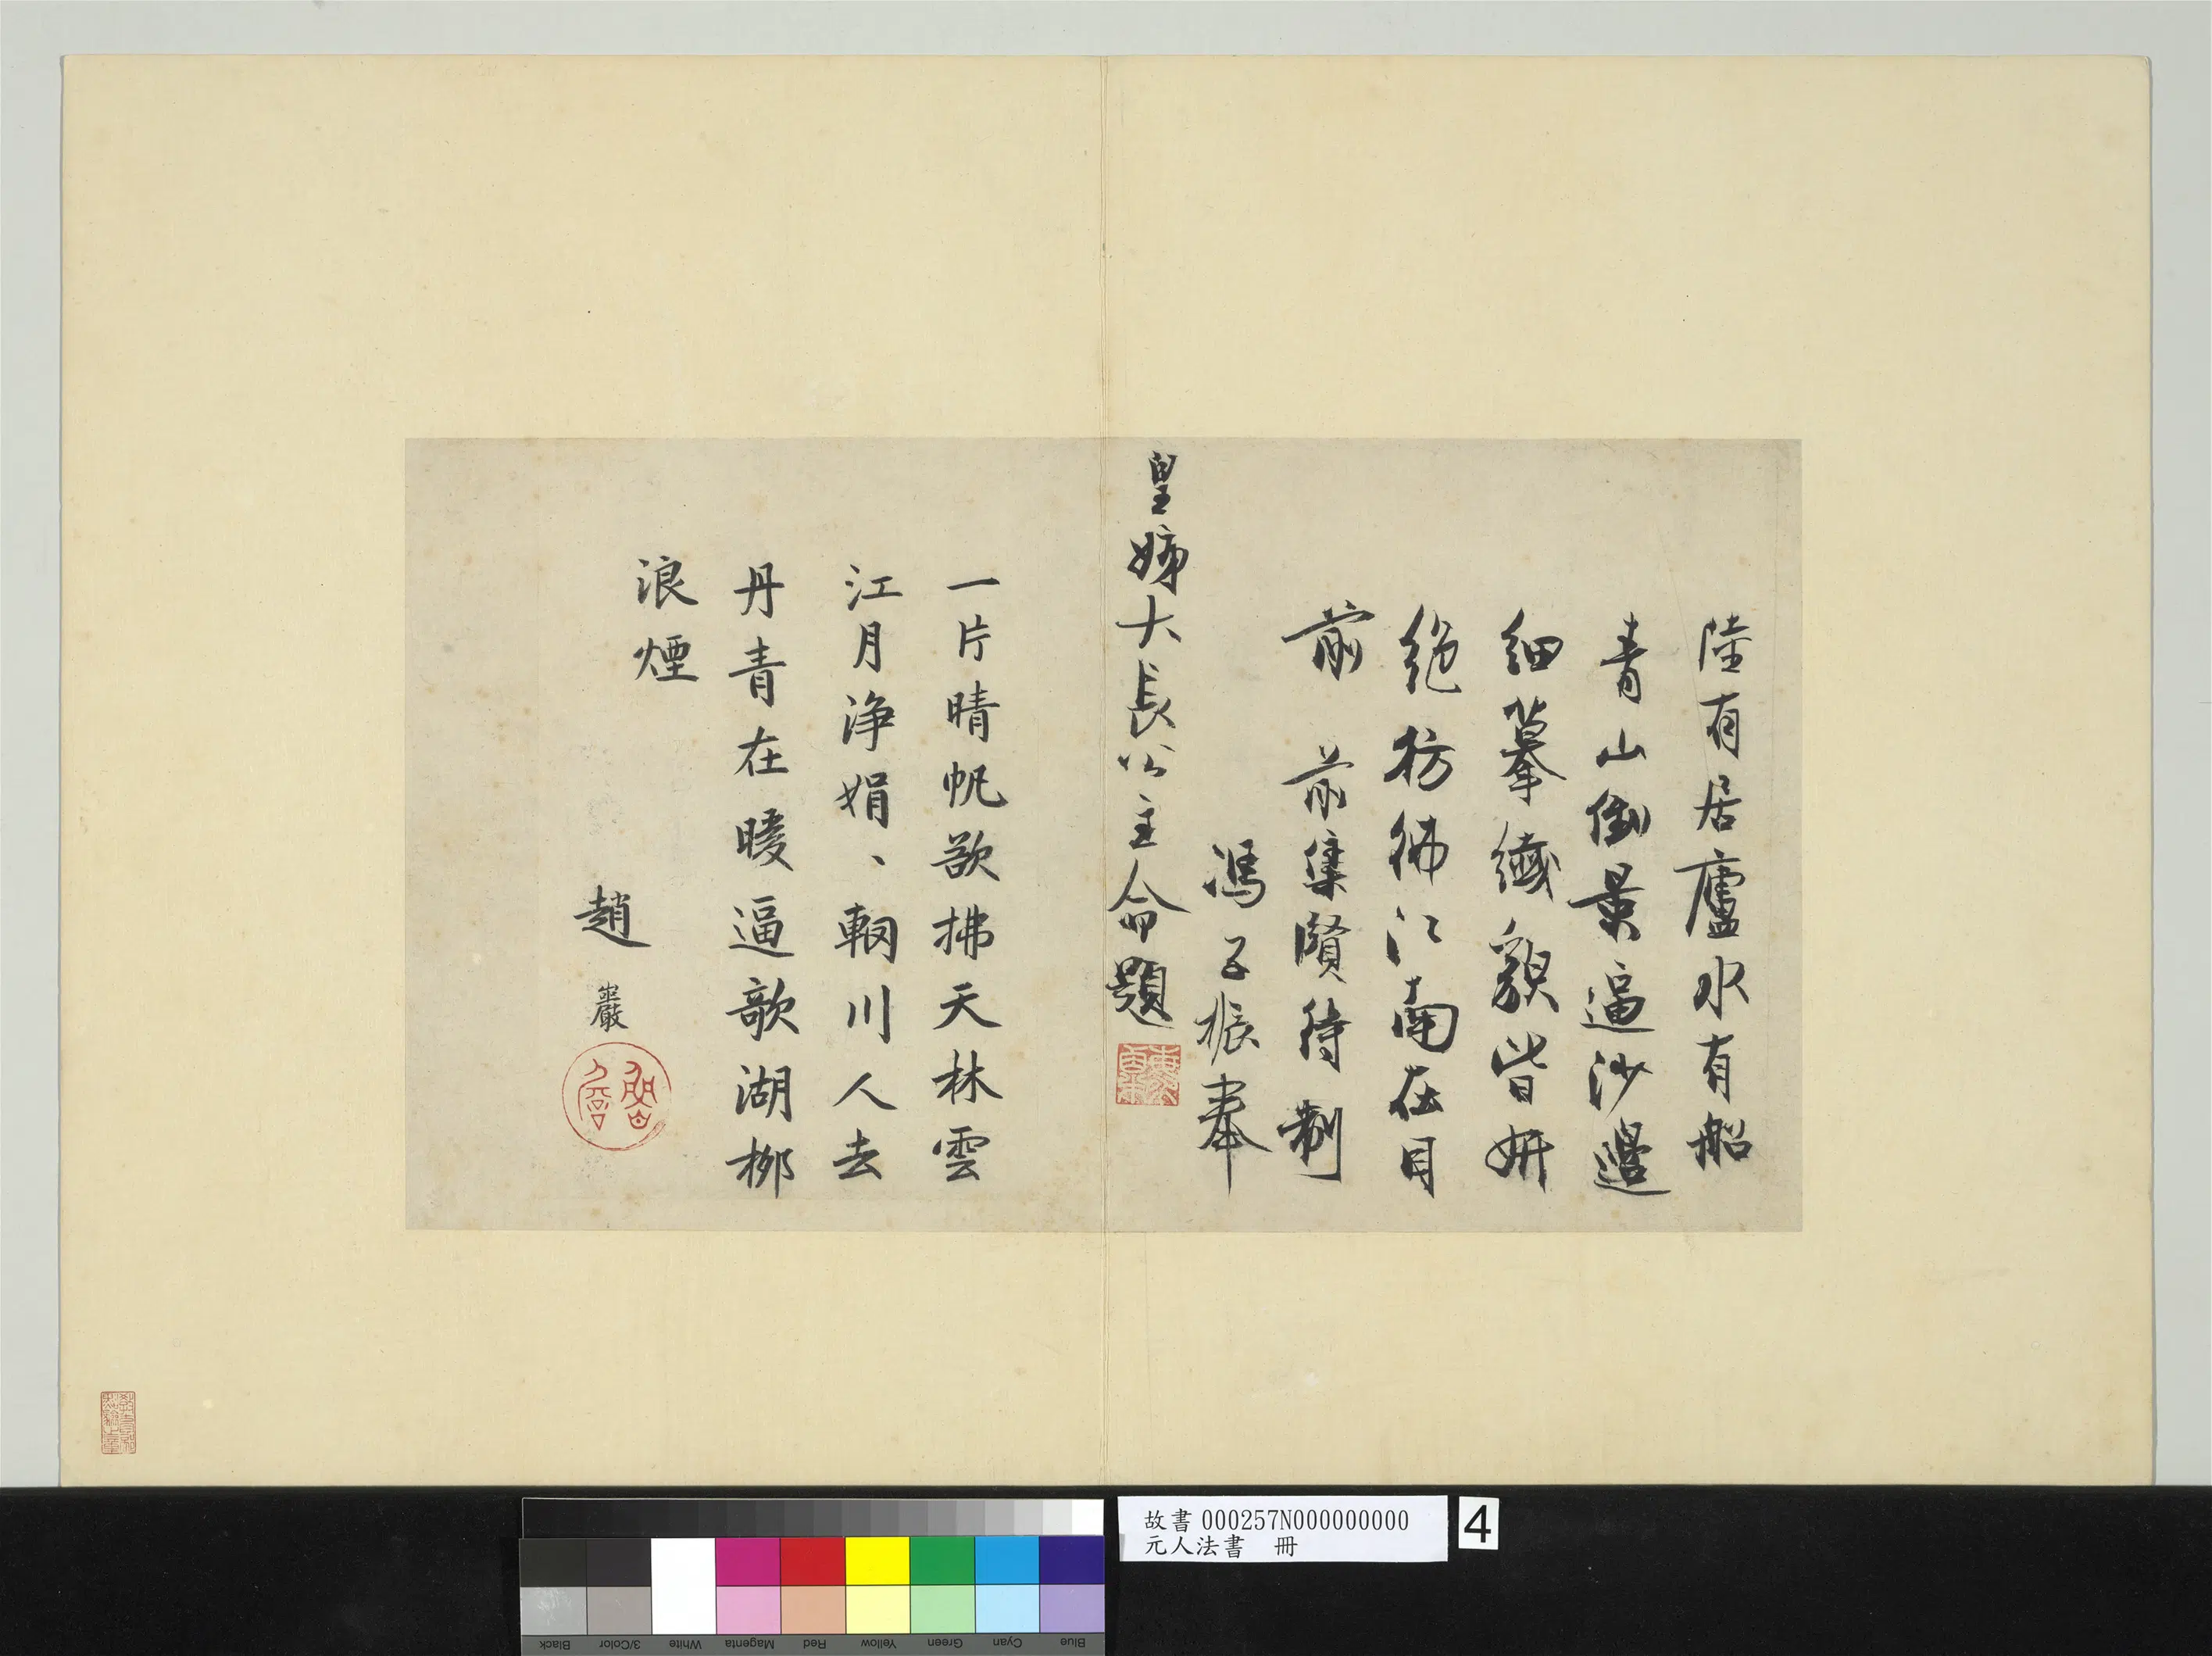 陸有居廬水有船
青山倒景逼沙邊
細摹纖貌皆妍
絕彷彿江南在目
前　前集賢待制
馮子振奉
皇姊大長公主命題
一片晴帆欲拂天林雲
江月淨娟、輞川人去
丹青在暖逼歌湖柳
浪煙
趙巖
故書000257N000000000
元人法書　冊
4
Black
3/Color
White
Magenta
Red
Yellow
Green
Cyan
Blue